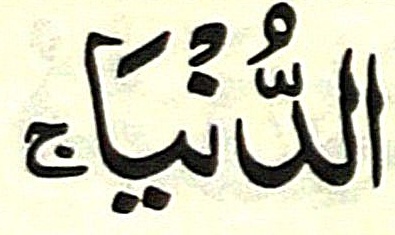 الدُّنْيَا ج